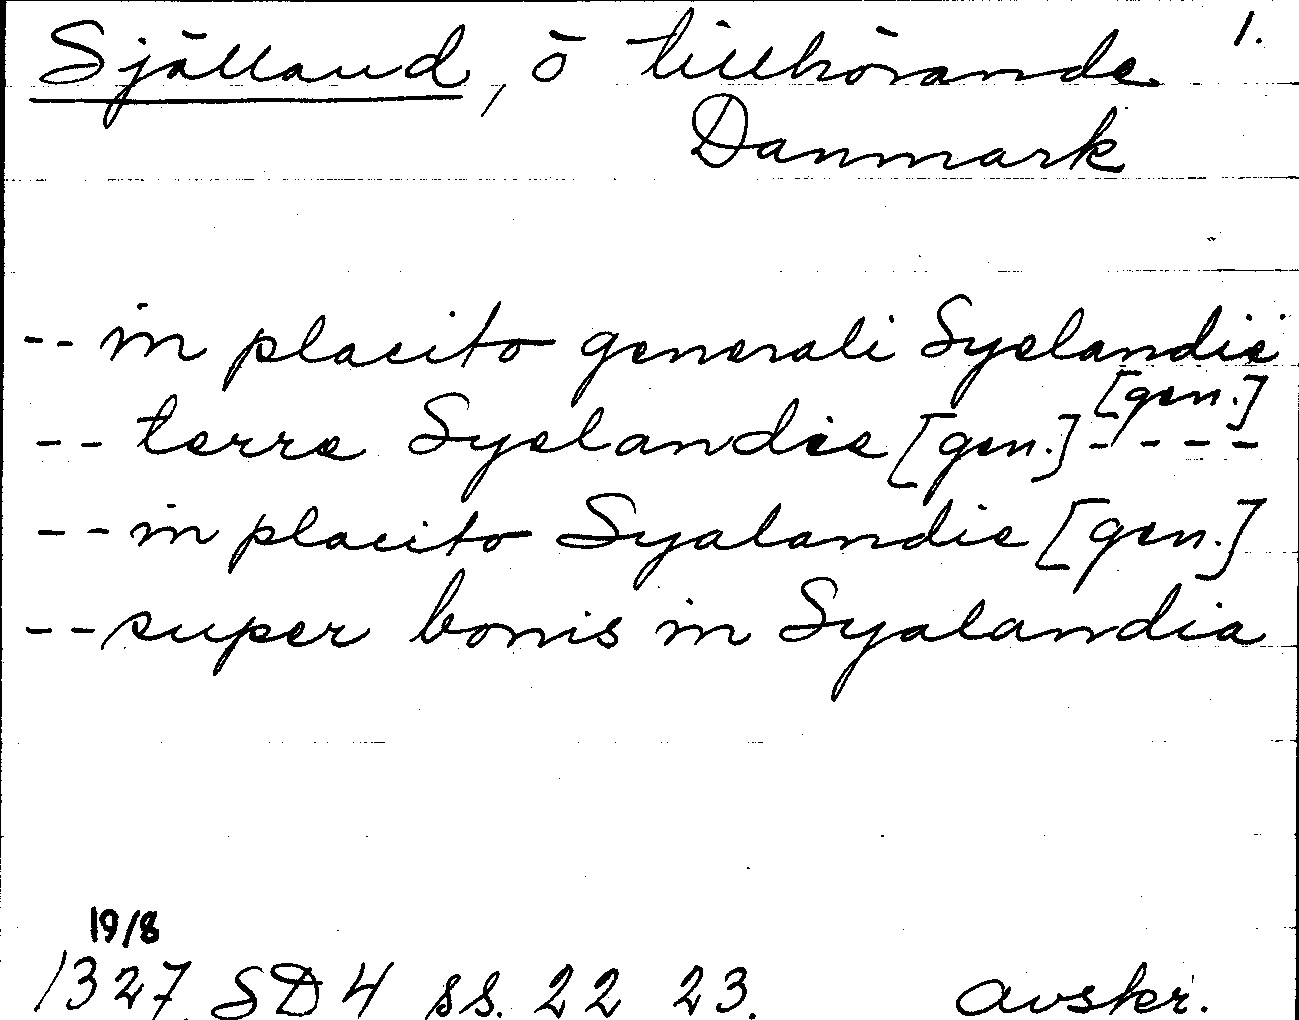 Själland, ö tillhörande 1.
Danmark
-- in placito generali Syelandie
[gen.]
-- terre Syelandie [gen.] - - - -
-- in placito Syalandie [gen.]
-- super bonis in Syalandia
19/8
1327 SD 4 ss. 22 23. avskr.